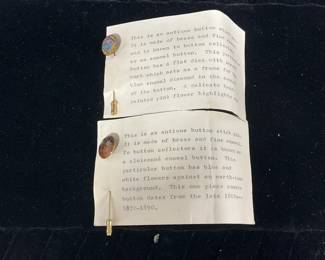 This is an antique button stick
It is made of brass and fine enamel
and is known to button collectors
to an enamel button. This
button has a flat disc with
back which acts as a frame for a
blue enamel diamond in the center
of the button. A delicate hand
painted pink flower highlights
This is an antique button stick pin.
It is made of brass and fine enamel.
To button collectors it is known as
a cloisonné enamel button. This
particular button has blue and
white flowers against an earthtone
background. This one piece
button dates from the late 1800s-
1870-1890.